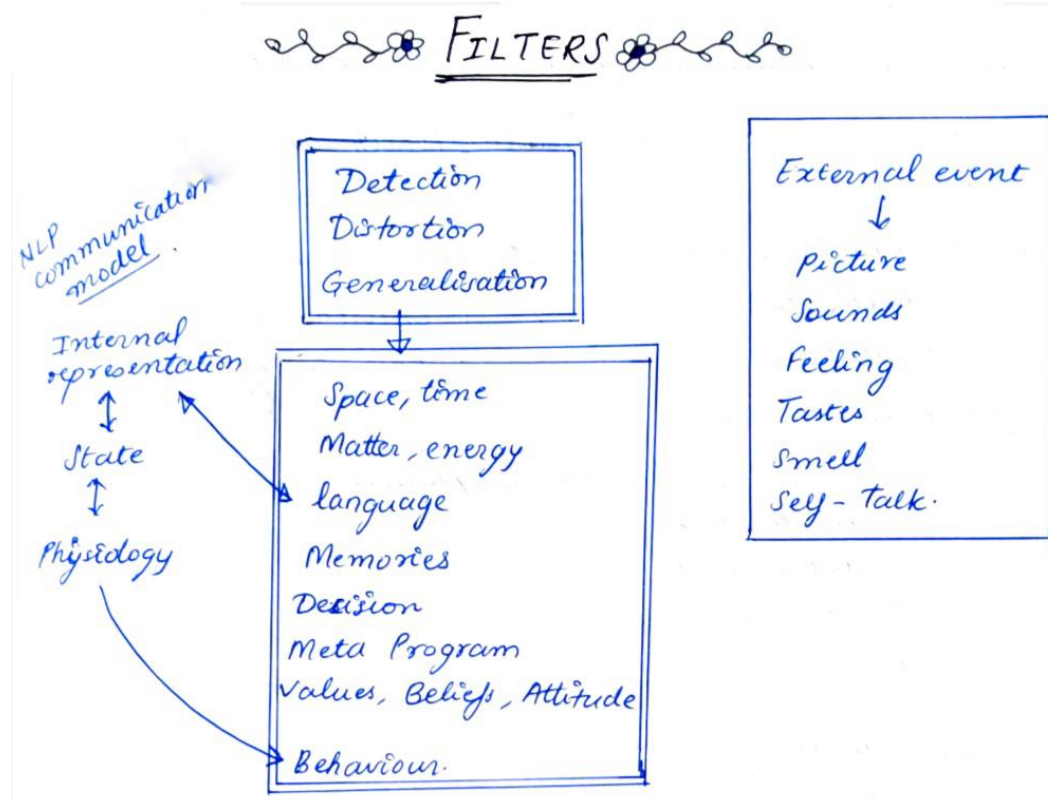 FILTERS
NLP
communication
model.
Internal
representation
State
Physiology
Detection
Distortion
Generalisation
Space, time
Matter, energy
language
Memories
Decision
Meta Program
Values, Beliefs, Attitude
Behaviour.
External event
Picture
Sounds
Feeling
Tastes
Smell
Self-Talk.